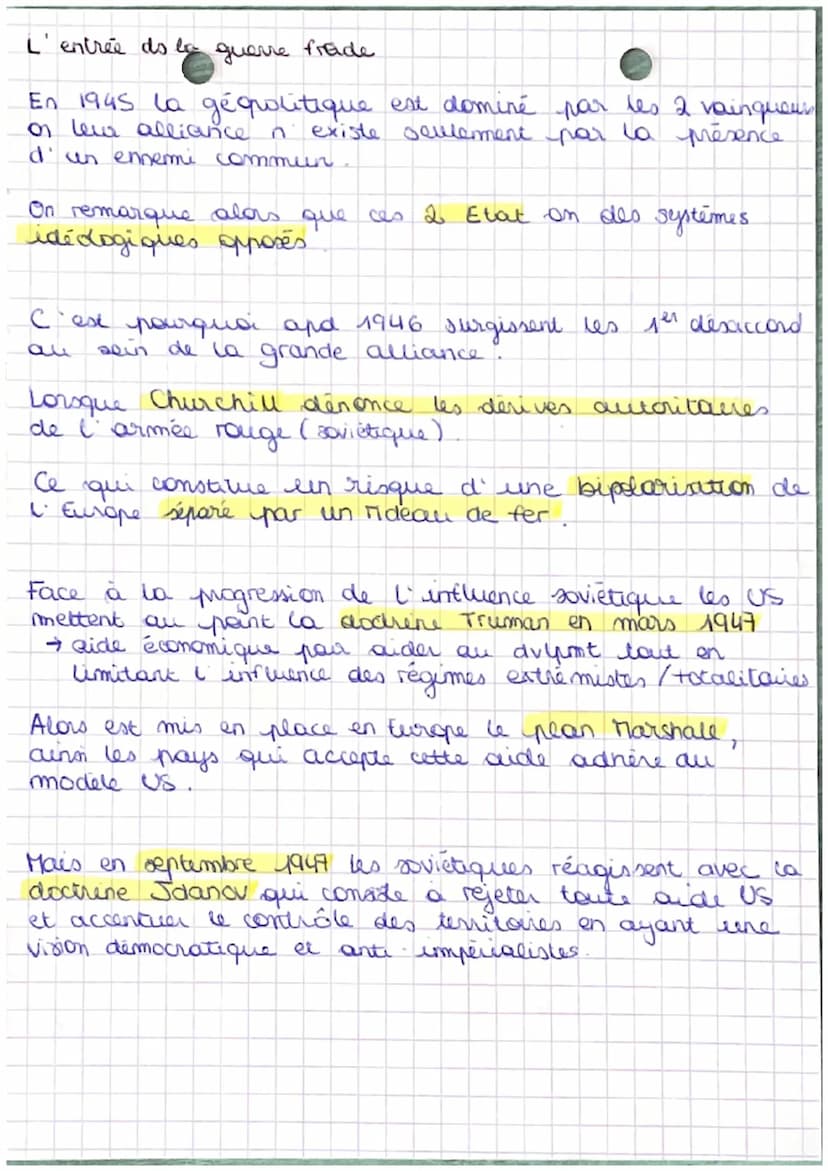 L'entrée ds la guerre froide
En 1945 la géopolitique est dominé par les 2 vainqueurs
or leur alliance n'existe seulement par la présence
d'un ennemi commun.
On remarque alors que ces 2 Etat on des systèmes
idéologiques opposés
C'est pourquoi apd 1946 surgissent les 1er désaccord
au sein de la grande alliance.
Lorsque Churchill dénonce les dérives autoritaires
de l'armée rouge (soviétique).
Ce qui constitue un risque d'une bipolarisation de
l'Europe séparé par un rideau de fer.
Face à la progression de l'influence soviétique les US
mettent au point la doctrine Truman en mars 1947
→ aide économique pour aider au dvlpmt tout en
limitant l'influence des régimes extrémistes / totalitaires
Alors est mis en place en Europe le plan Marshall,
ainsi les pays qui accepte cette aide adhère au
modèle US.
Mais en septembre 1947 les soviétiques réagissent avec la
doctrine Jdanov qui consiste à rejeter toute aide US
et accentuer le contrôle des territoires en ayant une
vision démocratique et anti-impérialistes.